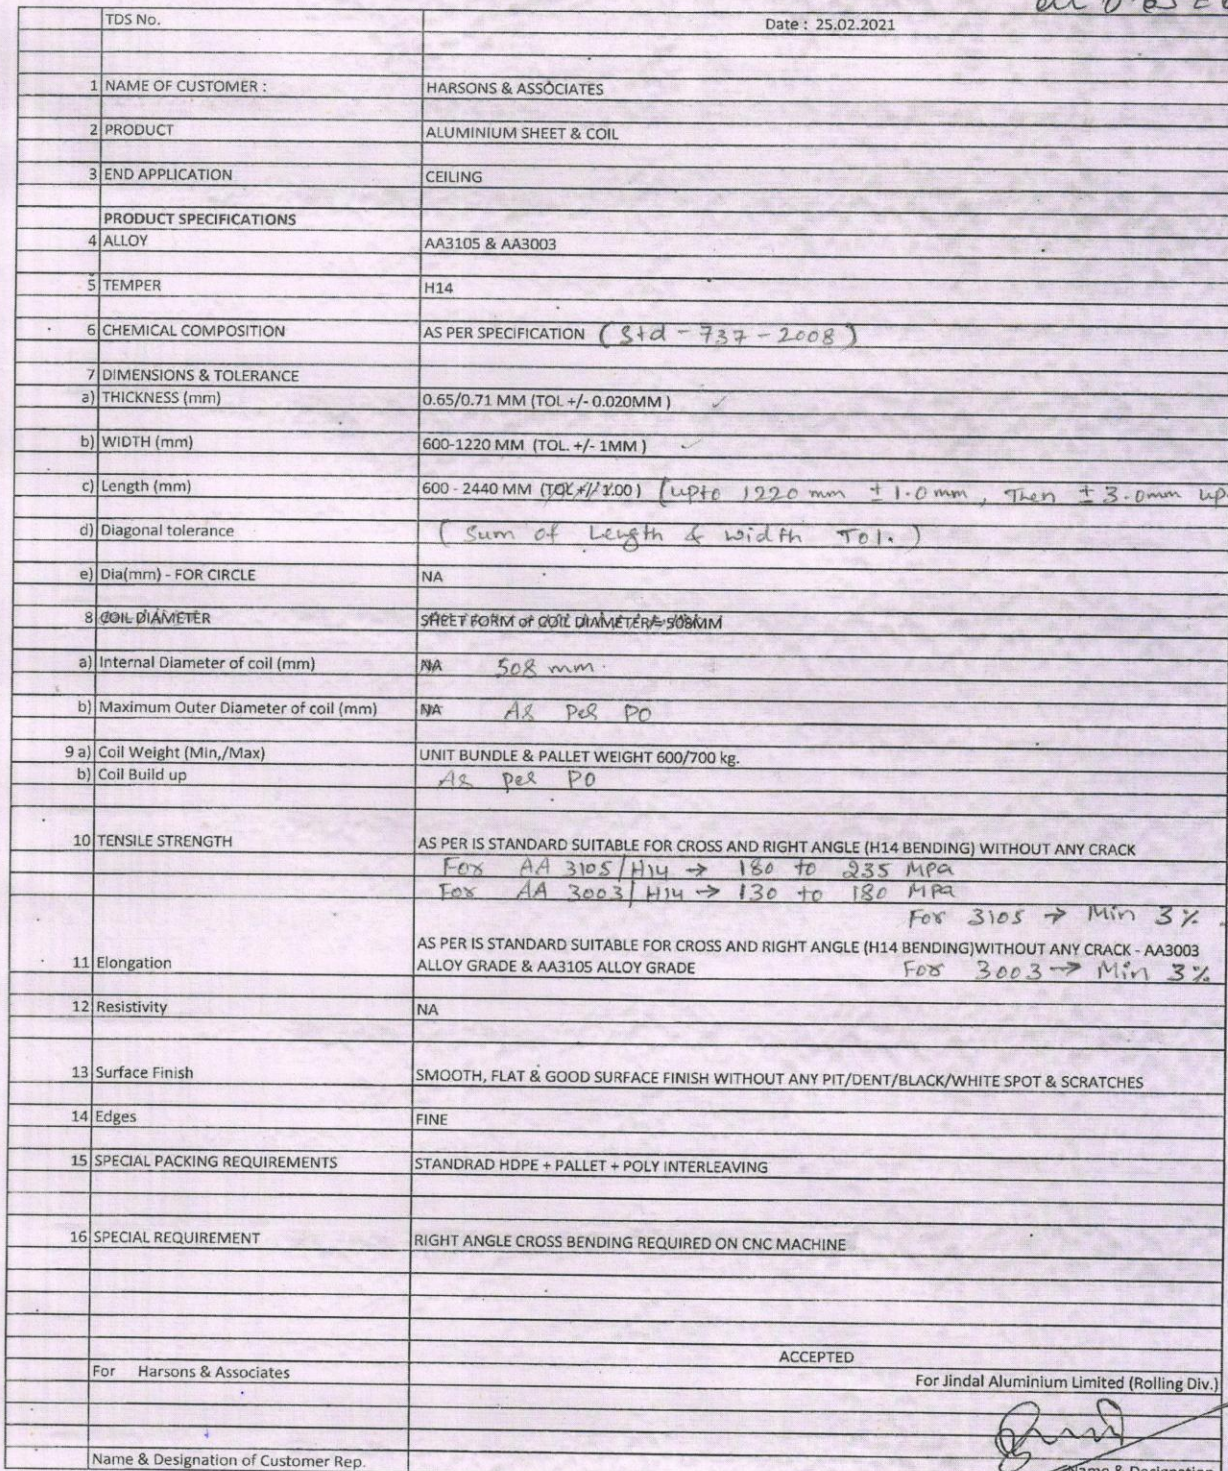 TDS No.
Date : 25.02.2021
1 NAME OF CUSTOMER : HARSONS & ASSOCIATES
2 PRODUCT ALUMINIUM SHEET & COIL
3 END APPLICATION CEILING
PRODUCT SPECIFICATIONS
4 ALLOY AA3105 & AA3003
5 TEMPER H14
6 CHEMICAL COMPOSITION AS PER SPECIFICATION (Std - 737 - 2008)
7 DIMENSIONS & TOLERANCE
a) THICKNESS (mm) 0.65/0.71 MM (TOL +/- 0.020MM )
b) WIDTH (mm) 600-1220 MM (TOL. +/- 1MM )
c) Length (mm) 600 - 2440 MM (TOL +/- 1.00) (upto 1220 mm ± 1.0mm, Then ± 3.0mm up
d) Diagonal tolerance (Sum of Length & width Tol.)
e) Dia(mm) - FOR CIRCLE NA
8 COIL DIAMETER SHEET FORM or COIL DIAMETER = 508MM
a) Internal Diameter of coil (mm) NA 508 mm.
b) Maximum Outer Diameter of coil (mm) NA As per PO
9 a) Coil Weight (Min,/Max) UNIT BUNDLE & PALLET WEIGHT 600/700 kg.
b) Coil Build up As per PO
10 TENSILE STRENGTH AS PER IS STANDARD SUITABLE FOR CROSS AND RIGHT ANGLE (H14 BENDING) WITHOUT ANY CRACK
For AA 3105/H14 → 180 to 235 MPa
For AA 3003/H14 → 130 to 180 MPa
For 3105 → Min 3%.
AS PER IS STANDARD SUITABLE FOR CROSS AND RIGHT ANGLE (H14 BENDING)WITHOUT ANY CRACK - AA3003
11 Elongation ALLOY GRADE & AA3105 ALLOY GRADE For 3003 → Min 3%
12 Resistivity NA
13 Surface Finish SMOOTH, FLAT & GOOD SURFACE FINISH WITHOUT ANY PIT/DENT/BLACK/WHITE SPOT & SCRATCHES
14 Edges FINE
15 SPECIAL PACKING REQUIREMENTS STANDRAD HDPE + PALLET + POLY INTERLEAVING
16 SPECIAL REQUIREMENT RIGHT ANGLE CROSS BENDING REQUIRED ON CNC MACHINE
ACCEPTED
For Harsons & Associates
For Jindal Aluminium Limited (Rolling Div.)
Name & Designation of Customer Rep.
Name & Designation